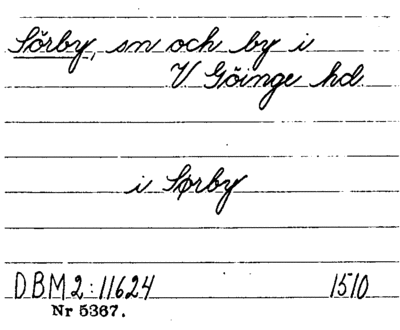 Sörby, sn och by i
V Göinge hd.
i Sørby
DBM2:11624 1510
Nr 5367.